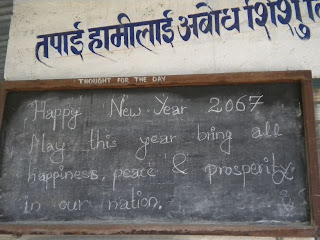 तपाई हामीलाई अबोध शिशु
THOUGHT FOR THE DAY
Happy New Year 2067
May this year bring all
happiness, peace & prosperity
in our nation.